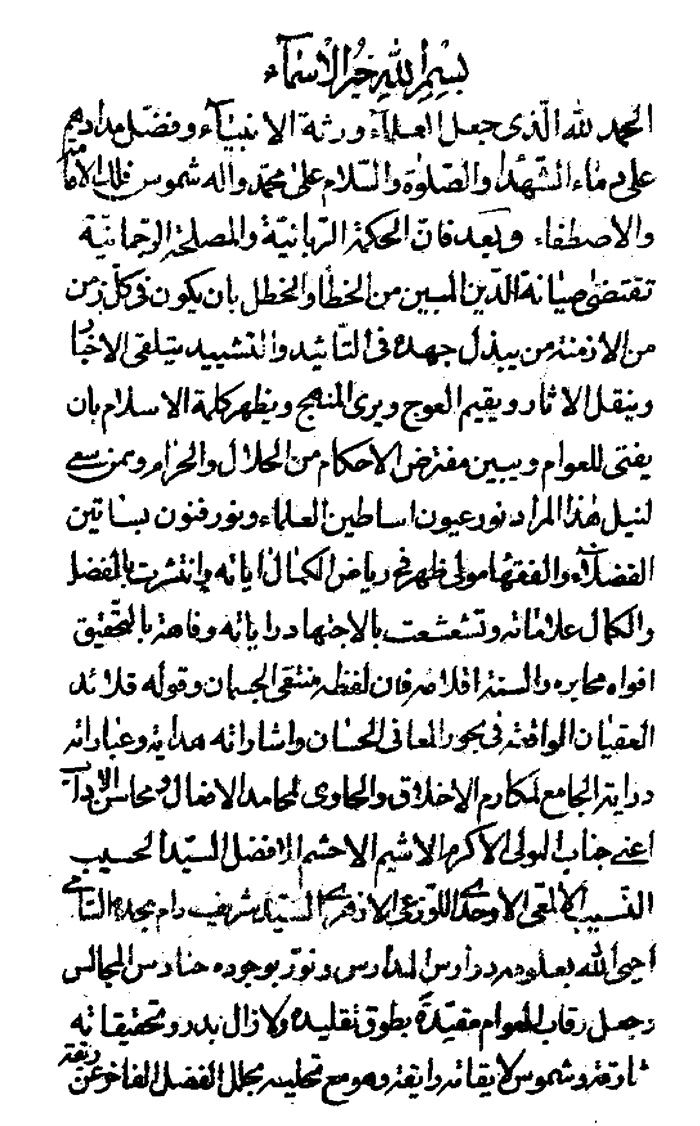 بسم الله خير الأسماء
الحمد لله الّذى جعل العلماء ورثة الانبياء وفضّل مدادهم
على دماء الشّهداء والصّلوة والسّلام على محمّد واله شموس فلك الامامة
والاصطفاء وبعد فانّ الحكمة الربانيّة والمصلحة الرحمانيّة
تقتضى صيانة الدّين المبين من الخطأ والخطل بان يكون فى كلّ زمن
من الازمنة من يبذل جهده فى التّأئيد والتشييد يتلقى الاخبار
وينقل الاثار ويقيم العوج ويرى المنهج ويظهر كلمة الاسلام بان
يفتى للعوام ويبين مفترض الاحكام من الحلال والحرام وممن سعى
لنيل هذا المراد نور عيون اساطين العلماء ونور فنون بساتين
الفضلاء والفقهاء مولى ظهر فى رياض الكمال اياته وانتشرت بالفضل
والكمال علاماته وتشعشعت بالاجتهاد راياته وفاهت بالتحقيق
افواه محابره والسنة اقلامه فان لفظه منتقى الجمان وقوله قلائد
العقيان الواقعة فى بحور المعانى الحسان واشاراته هداية وعباراته
دراية الجامع لمكارم الاخلاق والحاوى لمحامد الافعال ومحاسن الاداب
اعنى جناب المولى الاكرم الاشيم الاحشم الافضل السيّد الحسيب
النسيب الالمعى الاوحدى اللوزعى الازهرى السيّد شريف دام مجده السّامى
احيى الله بعلومه دوارس المدارس ونوّر بوجوده حنادس المجالس
وجعل رقاب العوام مقيّدة بطوق تقليده ولا زال بدور تحقيقاته
شارقة وشموس ايقاته رايقة وهو مع تحليته بحلل الفضل الفاخر عن ربقة